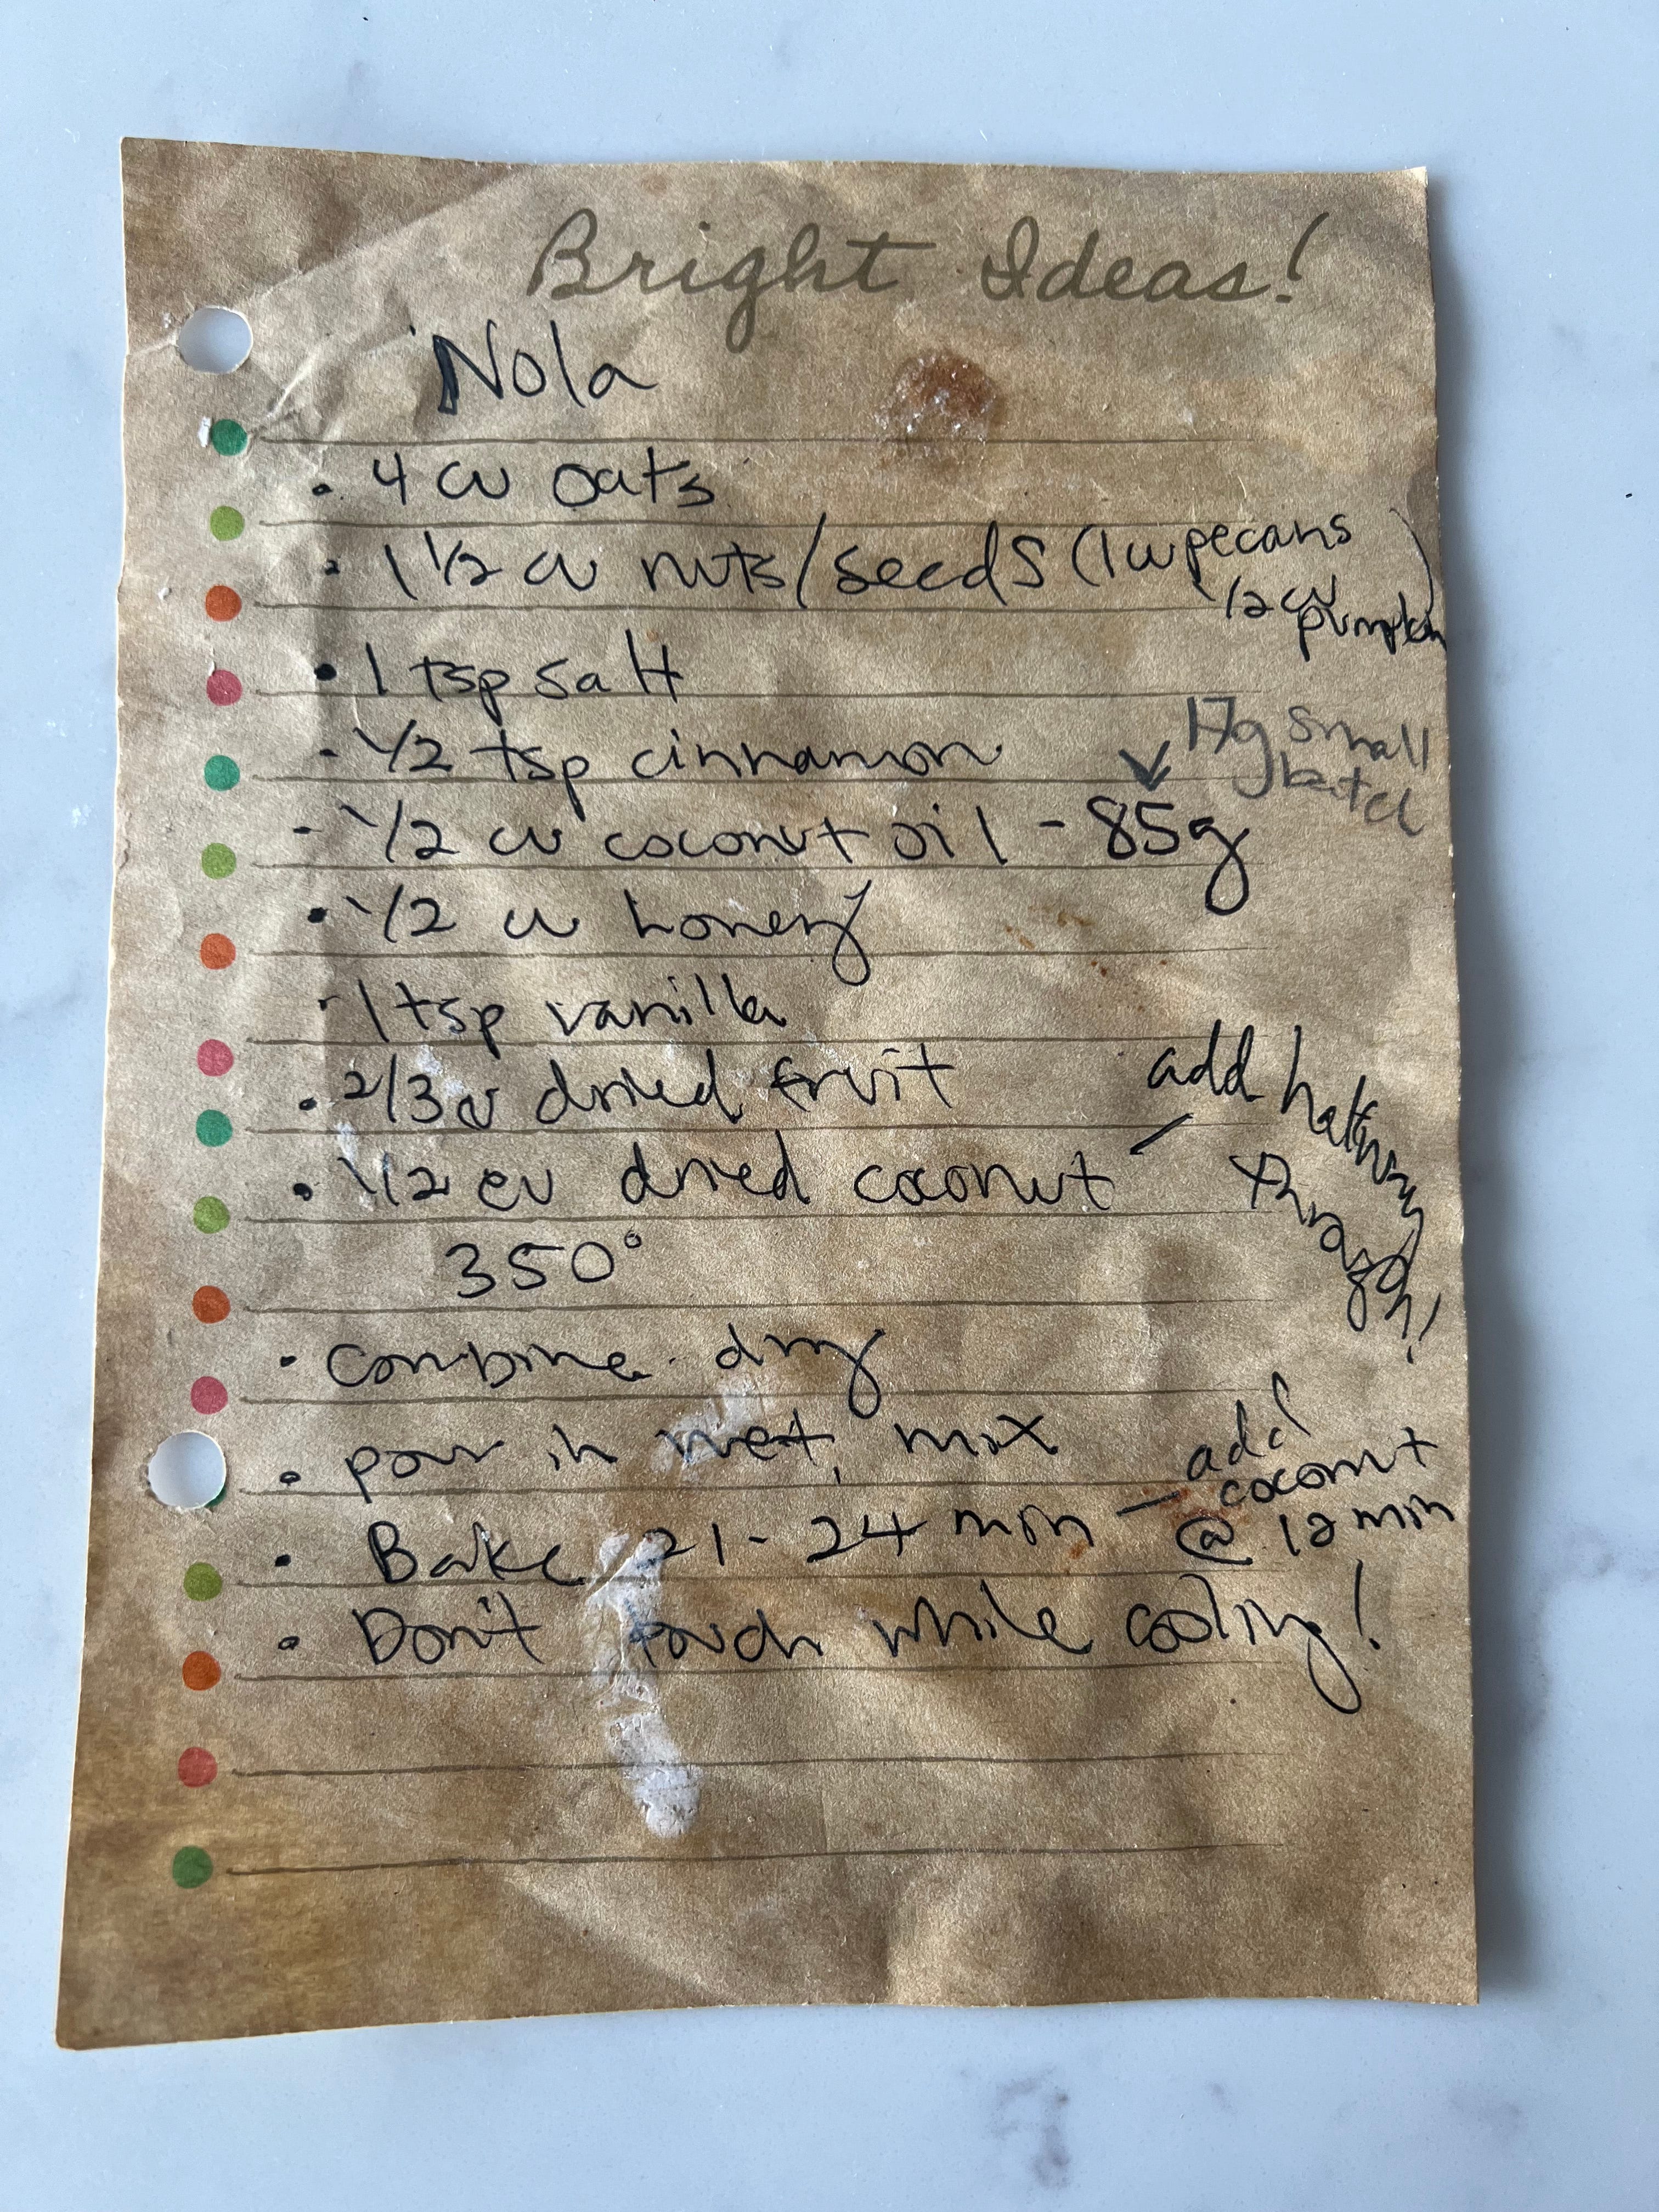 Bright Ideas!
Nola
• 4 cu oats
• 1 1/2 cu nuts/seeds (1 cu pecans
1/2 cu pumpkin)
• 1 tsp salt
• 1/2 tsp cinnamon
17g small
batch
- 1/2 cu coconut oil - 85g
• 1/2 cu honey
• 1 tsp vanilla
• 2/3 cu dried fruit
• 1/2 cu dried coconut - add halfway
through!
350°
• combine dry
• pour in wet, mix
• Bake 21-24 min - add
coconut
@ 12 min
• Don't touch while cooling!